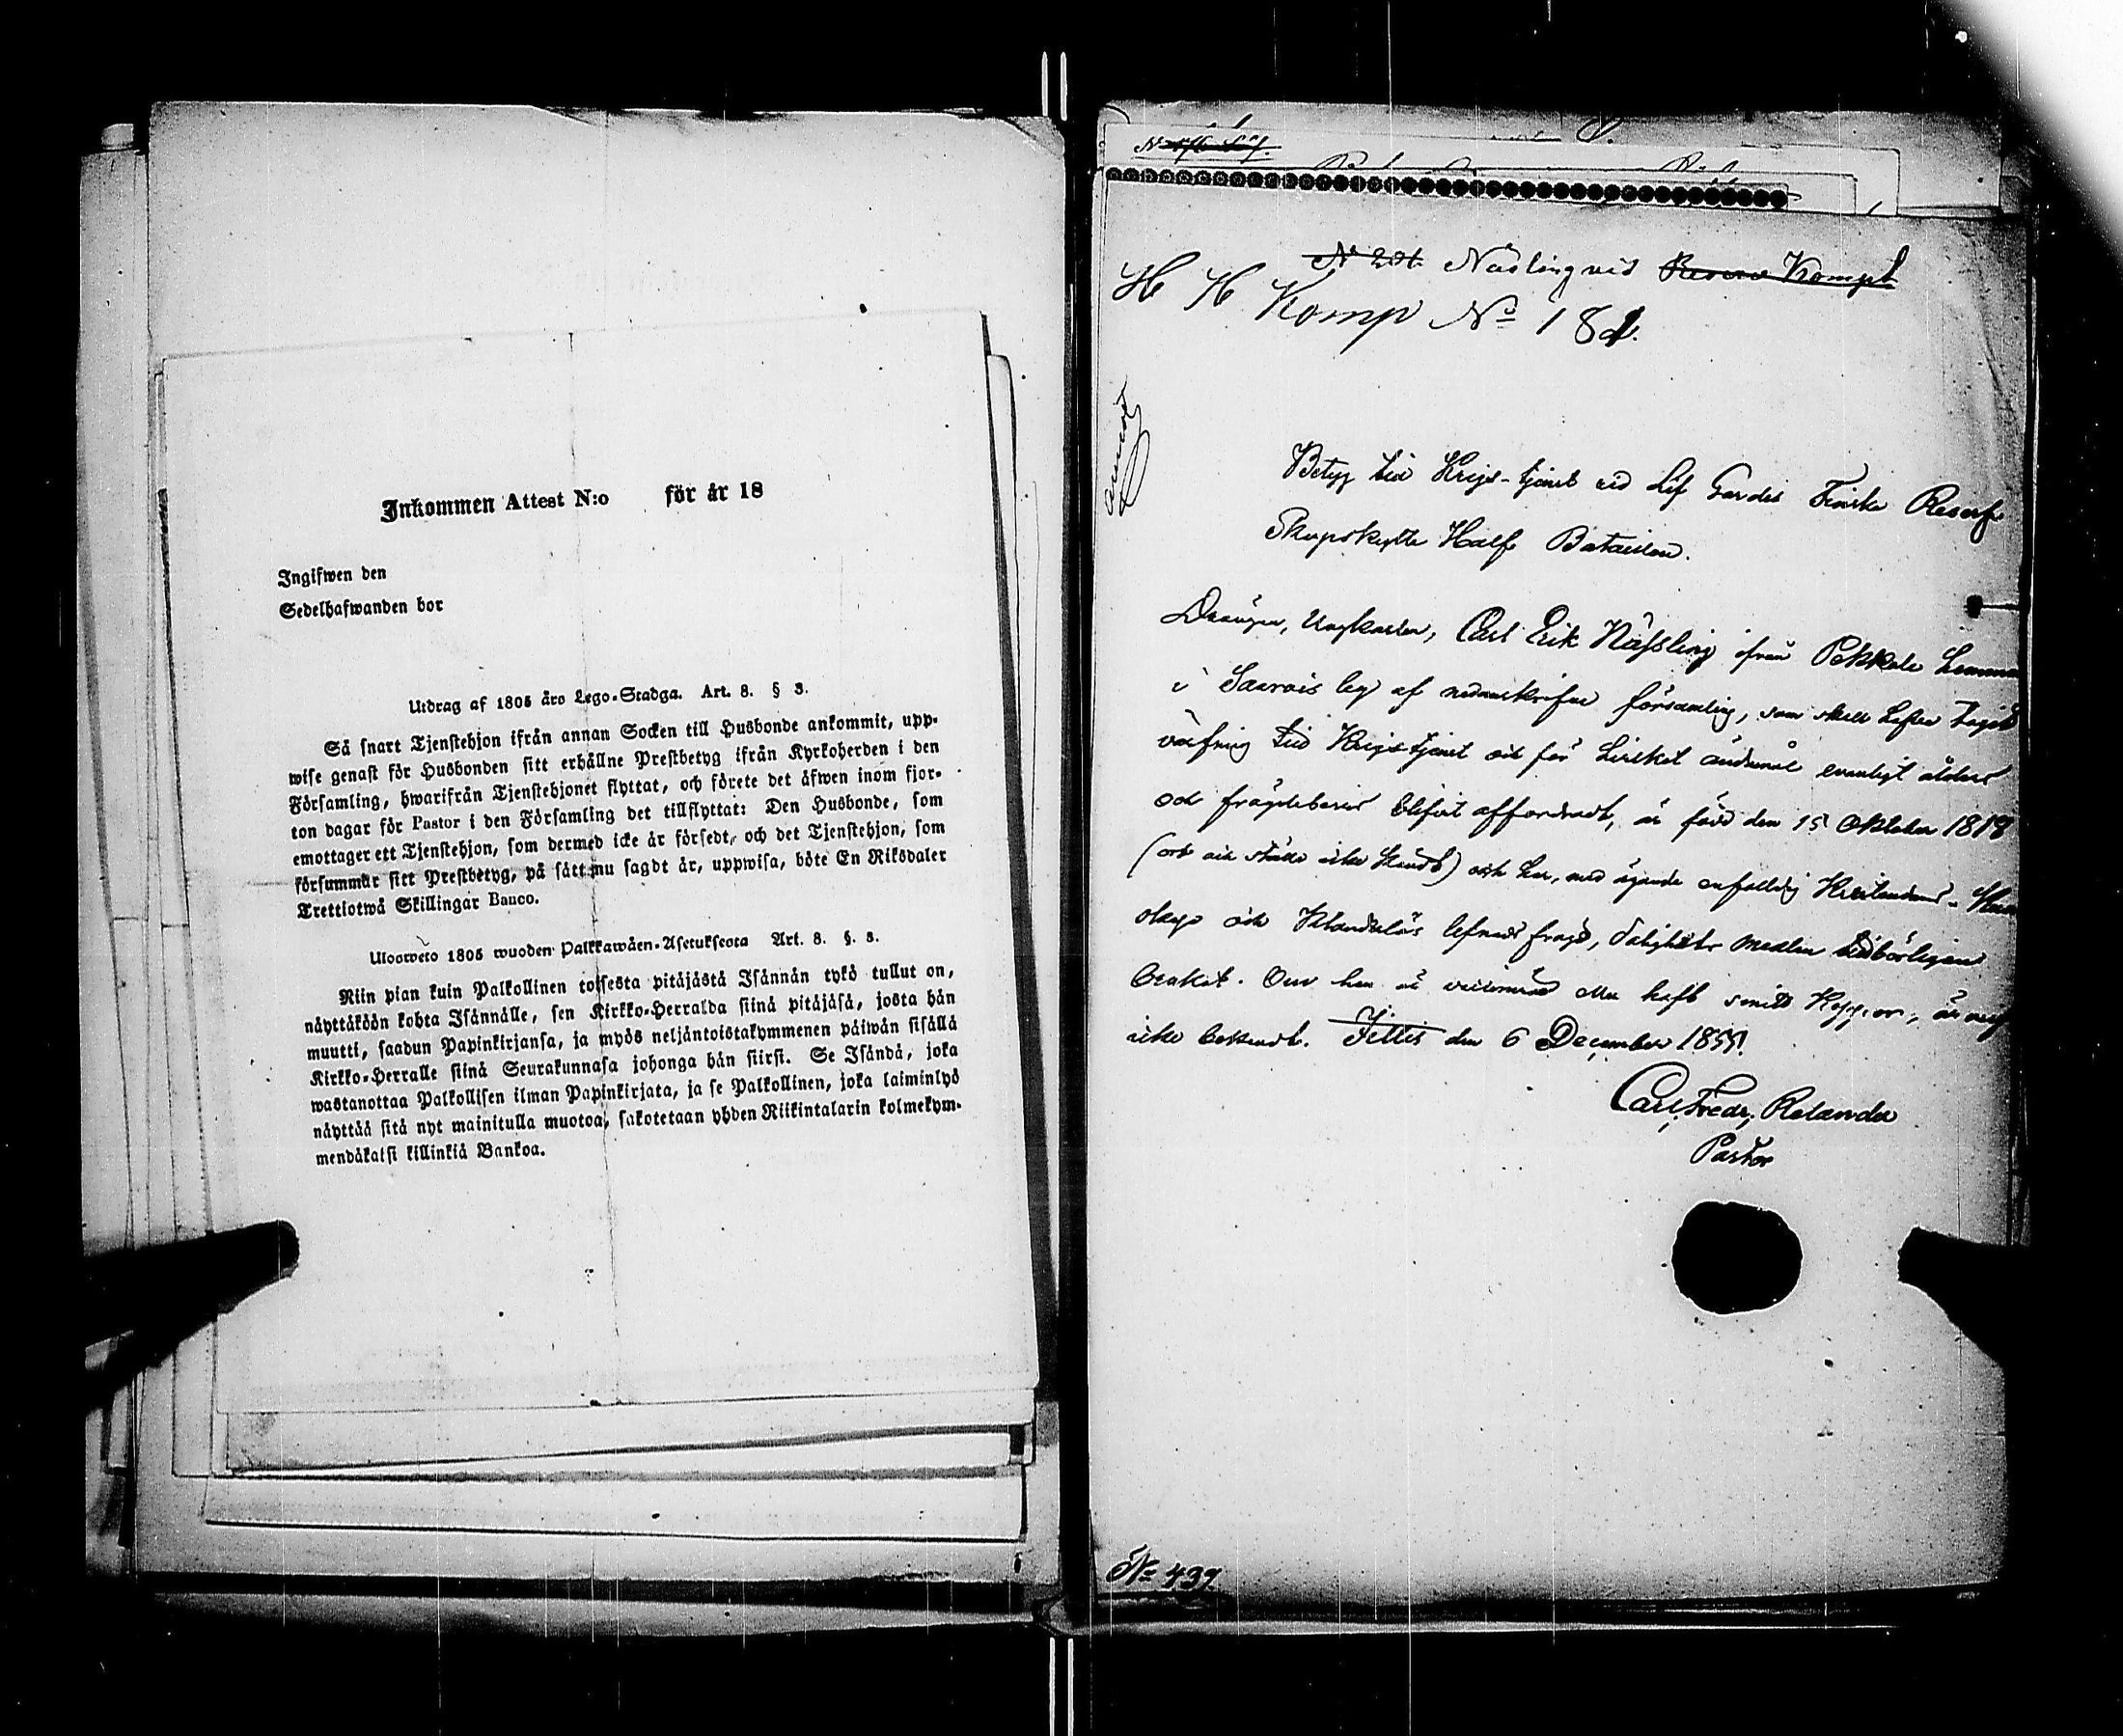 Inkommen Attest N:o för år 18
Ingifwen den
Sedelhafwanden bor
Utdrag af 1805 års Lego-Stadga. Art. 8. § 3.
Så snart Tjenstehjon ifrån annan Socken till Husbonde ankommit, upp-
wise genast för Husbonden sitt erhållne Prestbetyg ifrån Kyrkoherden i den
Församling, hwarifrån Tjenstehjonet flyttat, och förete det äfwen inom fjor-
ton dagar för Pastor i den Församling det tillflyttat: Den Husbonde, som
emottager ett Tjenstehjon, som dermed icke är försedt, och det Tjenstehjon, som
försummar sitt Prestbetyg, på sätt nu sagdt är, uppwisa, böte En Riksdaler
Trettiotwå Skillingar Banco.
Ulosweto 1805 wuoden Palkkawäen-Asetuksesta Art. 8. §. 3.
Niin pian kuin Palkollinen toisesta pitäjästä Isännän tykö tullut on,
näyttäköön kohta Isännälle, sen Kirkko-Herralda siinä pitäjäsä, josta hän
muutti, saadun Papinkirjansa, ja myös neljäntoistakymmenen päiwän sisällä
Kirkko-Herralle siinä Seurakunnasa johonga hän siirsi. Se Isändä, joka
wastanottaa Palkollisen ilman Papinkirjata, ja se Palkollinen, joka laiminlyö
näyttää sitä nyt mainitulla muotoa, sakotetaan yhden Riikintalarin kolmekym-
mendäkaksi killinkiä Bankoa.
N 201. Näsling vid Reserv Kompt
H H Komp No 181.
Betyg till Krigs-tjenst vid Lif Gardes Finska Reserf
Skarpskytte Half Bataillon.
Drängen, Ungkarlen, Carl Erik Nässling ifrån Pekkala
i Saarois by af nedanskrifne församling, som skall låtit
värfning till Krigstjenst och för hvilket ändamål
och frägdebevis blifvit affordradt, är född den 15 Oktober 1818
(ort och ställe icke kändt) och har, med ägande enfaldig Kristendoms-
skap och Klanderlös lefnads frägd, Salighets medlen behörigen
brukat. Om han är vaccinerad eller haft smitt Koppor, är mig
icke bekandt. Jittis den 6 December 1855.
Carl Fredr. Relander
Pastor
No 437